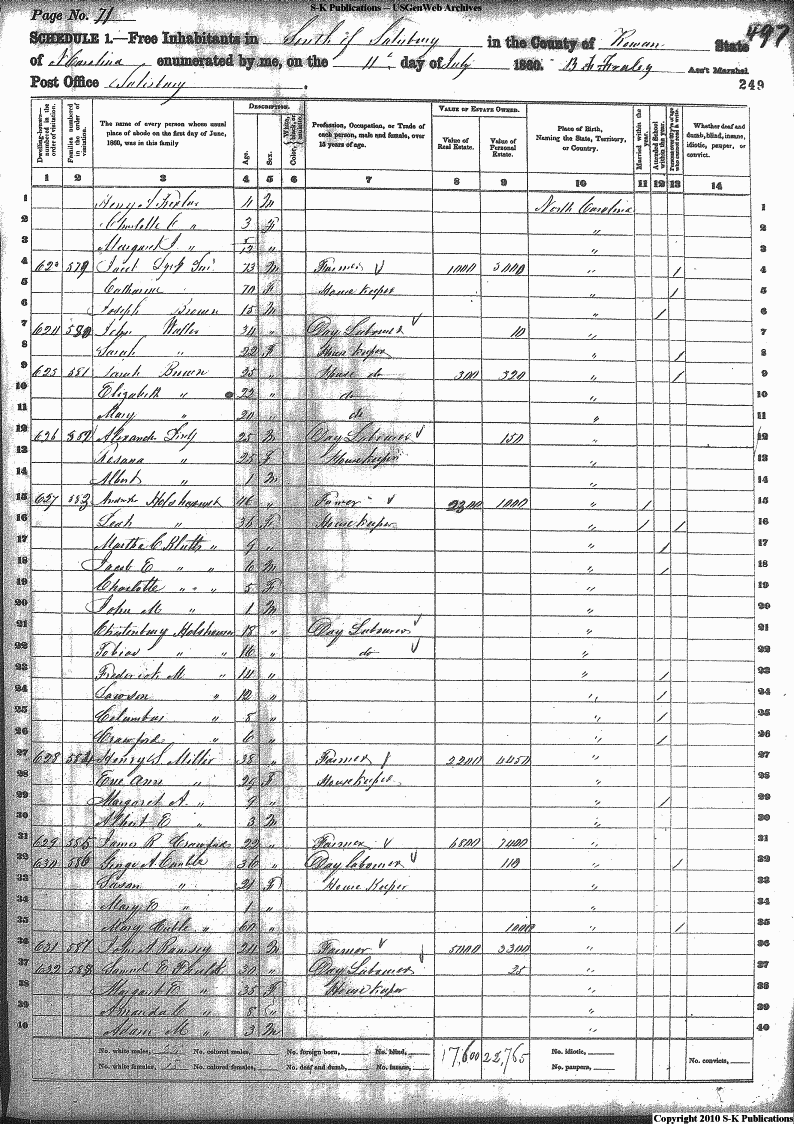 S-K Publications – USGenWeb Archives
Page No. 71
497
SCHEDULE 1.—Free Inhabitants in South of Salisbury in the County of Rowan State
of N Carolina enumerated by me, on the 11th day of July 1860. Ass't Marshal
Post Office Salisbury
249
Dwelling-houses— numbered in the order of visitation.
Families numbered in the order of visitation.
The name of every person whose usual place of abode on the first day of June, 1860, was in this family
DESCRIPTION.
Age.
Sex.
Color, White, black, or mulatto.
Profession, Occupation, or Trade of each person, male and female, over 15 years of age.
VALUE OF ESTATE OWNED.
Value of Real Estate.
Value of Personal Estate.
Place of Birth, Naming the State, Territory, or Country.
Married within the year.
Attended School within the year.
Whether deaf and dumb, blind, insane, idiotic, pauper, or convict.
1 2 3 4 5 6 7 8 9 10 11 12 13 14
1 4 M North Carolina 1
2 Charlotte C " 3 F " 2
3 Margaret J " " " 3
4 579 73 M Farmer 1000 / 4
5 Catharine 70 F House Keeper " / 5
6 Joseph Brown 15 M " / 6
7 624 580 John Waller 34 " Day Labourer 10 " 7
8 Sarah " 22 F House Keeper " / 8
9 625 581 Sarah Brown 25 " House do 300 320 " / 9
10 Elizabeth " 22 " do " 10
11 Mary " 20 " do " 11
12 626 582 Alexander 25 M Day Labourer 150 " 12
13 Rosana " 25 F House Keeper " 13
14 Albert " 1 M " 14
15 627 583 Holshouser 46 " Farmer 2300 1000 " / 15
16 Leah " 35 F House Keeper " / / 16
17 Martha C Kluttz " 9 " " / 17
18 Jacob E " " 6 M " / 18
19 Charlotte " " " 5 F " 19
20 John M " 1 M " 20
21 Holshouser 18 " Day Labourer " 21
22 Tobias " " 16 " do " 22
23 Frederick M " 14 " " / 23
24 Lawson " 12 " " / 24
25 Columbus " 8 " " / 25
26 Crawford " 6 " " / 26
27 628 584 Henry L Miller 38 " Farmer 2200 4450 " 27
28 Eve Ann " 29 F House Keeper " 28
29 Margaret A. " 9 " " / 29
30 Albert E " 3 M " 30
31 629 585 James R Crawford 22 " Farmer 6800 7400 " 31
32 630 586 George A 36 " Day Labourer 110 " / 32
33 Susan " 21 F House Keeper " 33
34 Mary E " 1 " " 34
35 Mary " 60 " 1000 " / 35
36 631 587 John A Ramsey 24 M Farmer 5000 3300 " 36
37 632 588 Samuel E 30 " Day Labourer 25 " 37
38 Margaret E " 35 F House Keeper " 38
39 Amanda C " 8 " " 39
40 Adam M " 3 M " 40
No. white males, No. colored males, No. foreign born, No. blind, 17,600 22,765 No. idiotic, No. convicts,
No. white females, No. colored females, No. deaf and dumb, No. insane, No. paupers,
Copyright 2010 S-K Publications